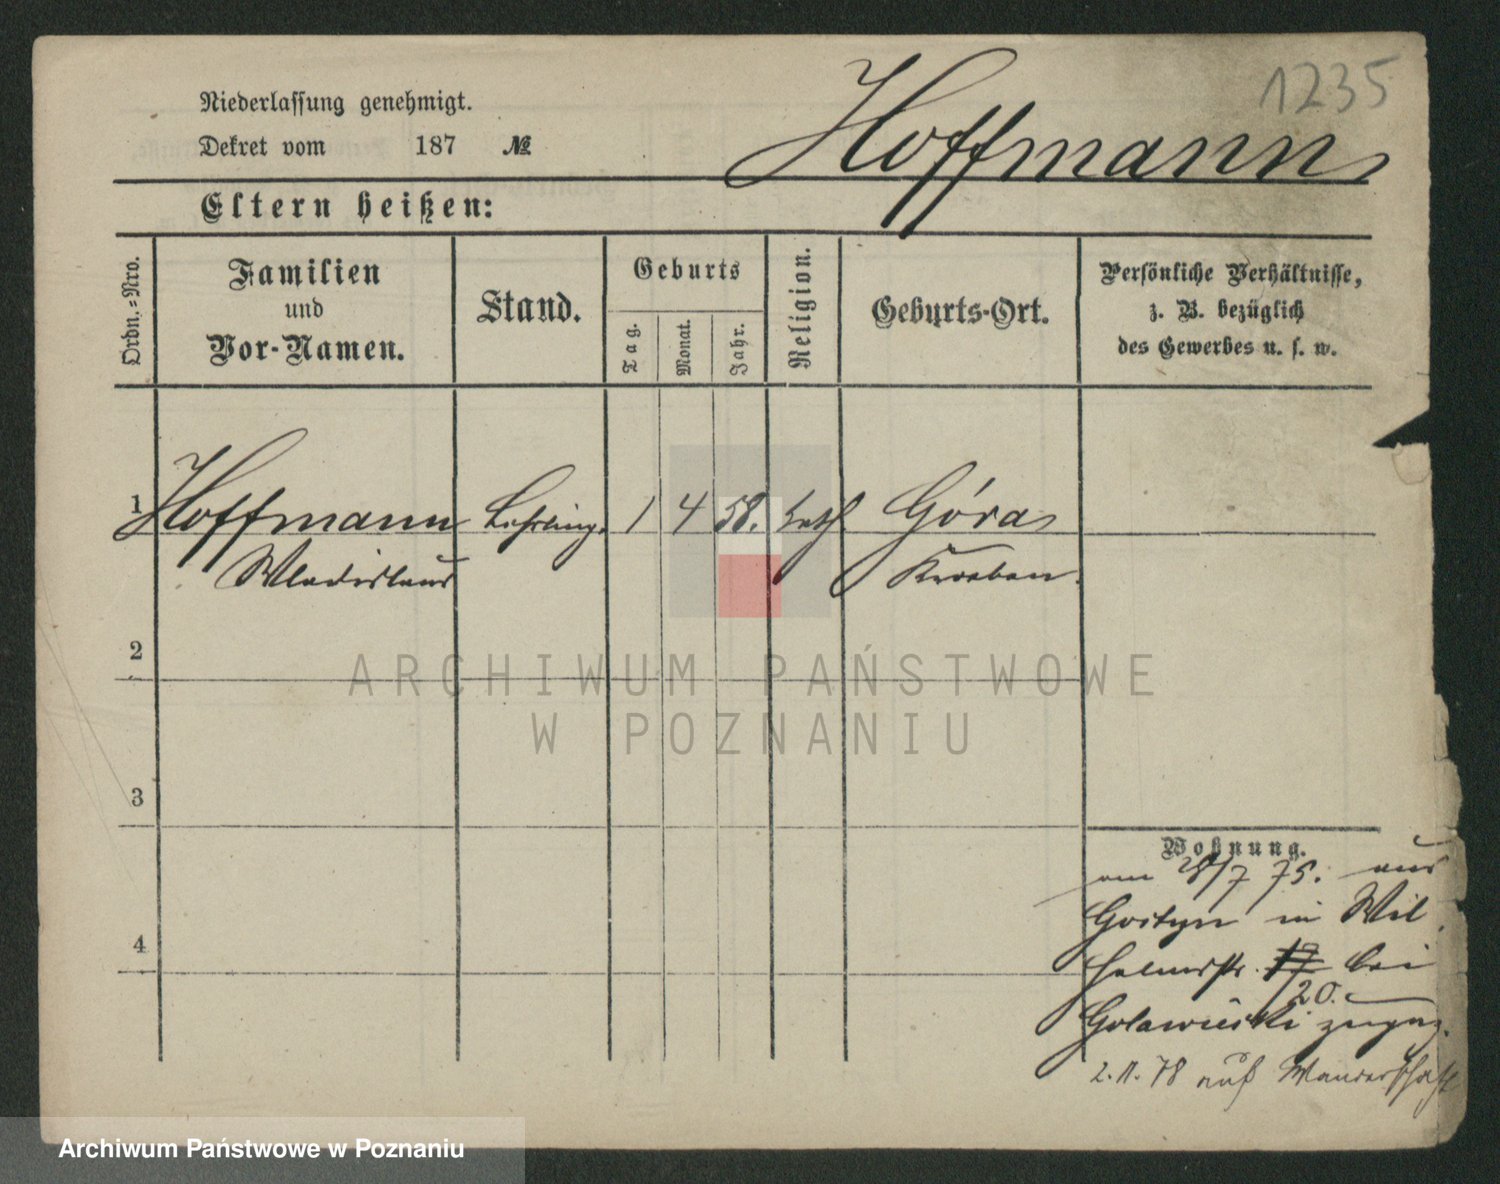 1235
Hoffmann
Niederlassung genehmigt.
Dekret vom 187 №
Eltern heißen:
Ordn.-Nro.
Familien
und
Vor-Namen.
Stand.
Geburts
Tag.
Monat.
Jahr.
Religion.
Geburts-Ort.
Persönliche Verhältnisse,
z. B. bezüglich
des Gewerbes u. s. w.
1 Hoffmann Lehrling. 1 4 58. kath Góra
Wladislaus Kroeben.
2
3
4
Wohnung.
am 28/7 75. aus
Gostyn in Wil
helmstr. 17 bei
20.
Golawieski zugez.
2. 11. 78 auf Wanderschaft
ARCHIWUM PAŃSTWOWE
W POZNANIU
Archiwum Państwowe w Poznaniu